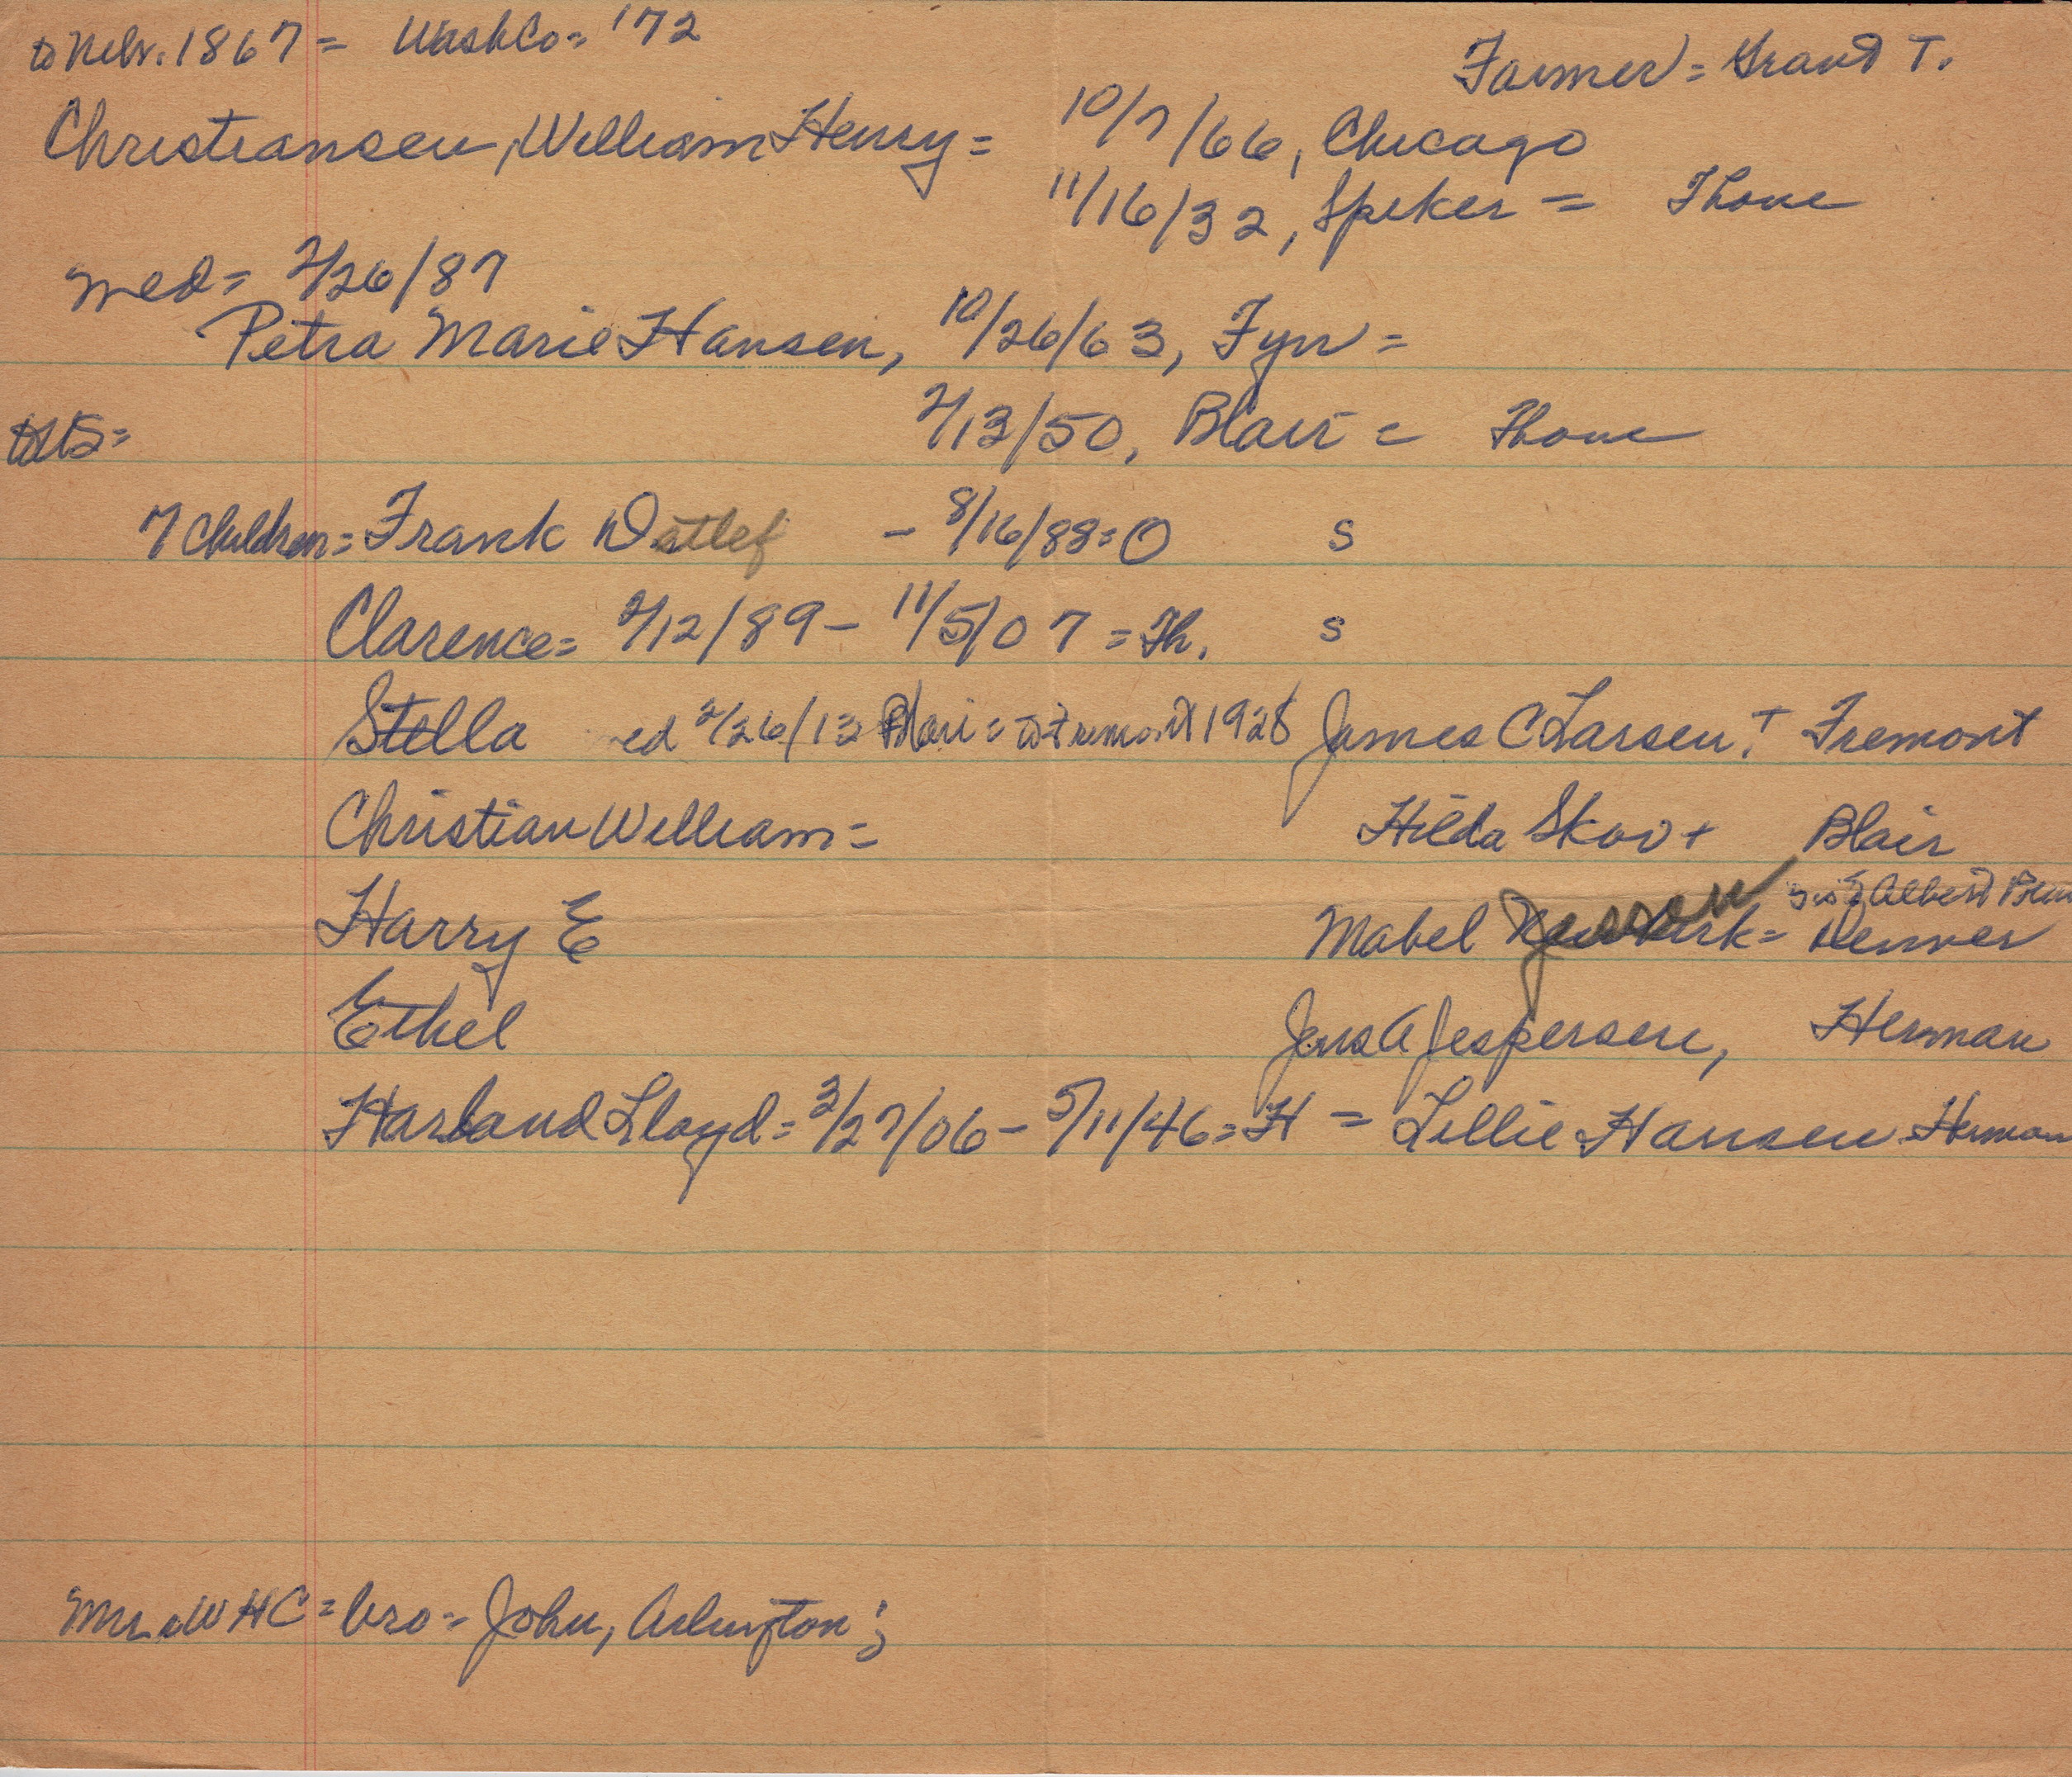 to Nebr. 1867 = WashCo = '72
Farmer = Grant T.
Christiansen, William Henry = 10/7/66, Chicago
11/16/32, Spiker = Thone
med = 2/26/87
Petra Marie Hansen, 10/26/63, Fyn =
2/13/50, Blair = Thone
to US =
7 Children = Frank Detlef - 8/16/88 = O S
Clarence = 2/12/89 - 11/5/07 = Th. S
Stella ed 2/26/13 Blair = to Fremont 1928 James C Larsen + Fremont
Christian William = Hilda Skov + Blair
sis Albert
Harry E Mabel Jesson = Denver
Ethel Jens A Jespersen, Herman
Harland Lloyd = 3/27/06 - 5/11/46 = H = Lillie Hansen Herman
Mr. WHC = bro = John, Arlington;